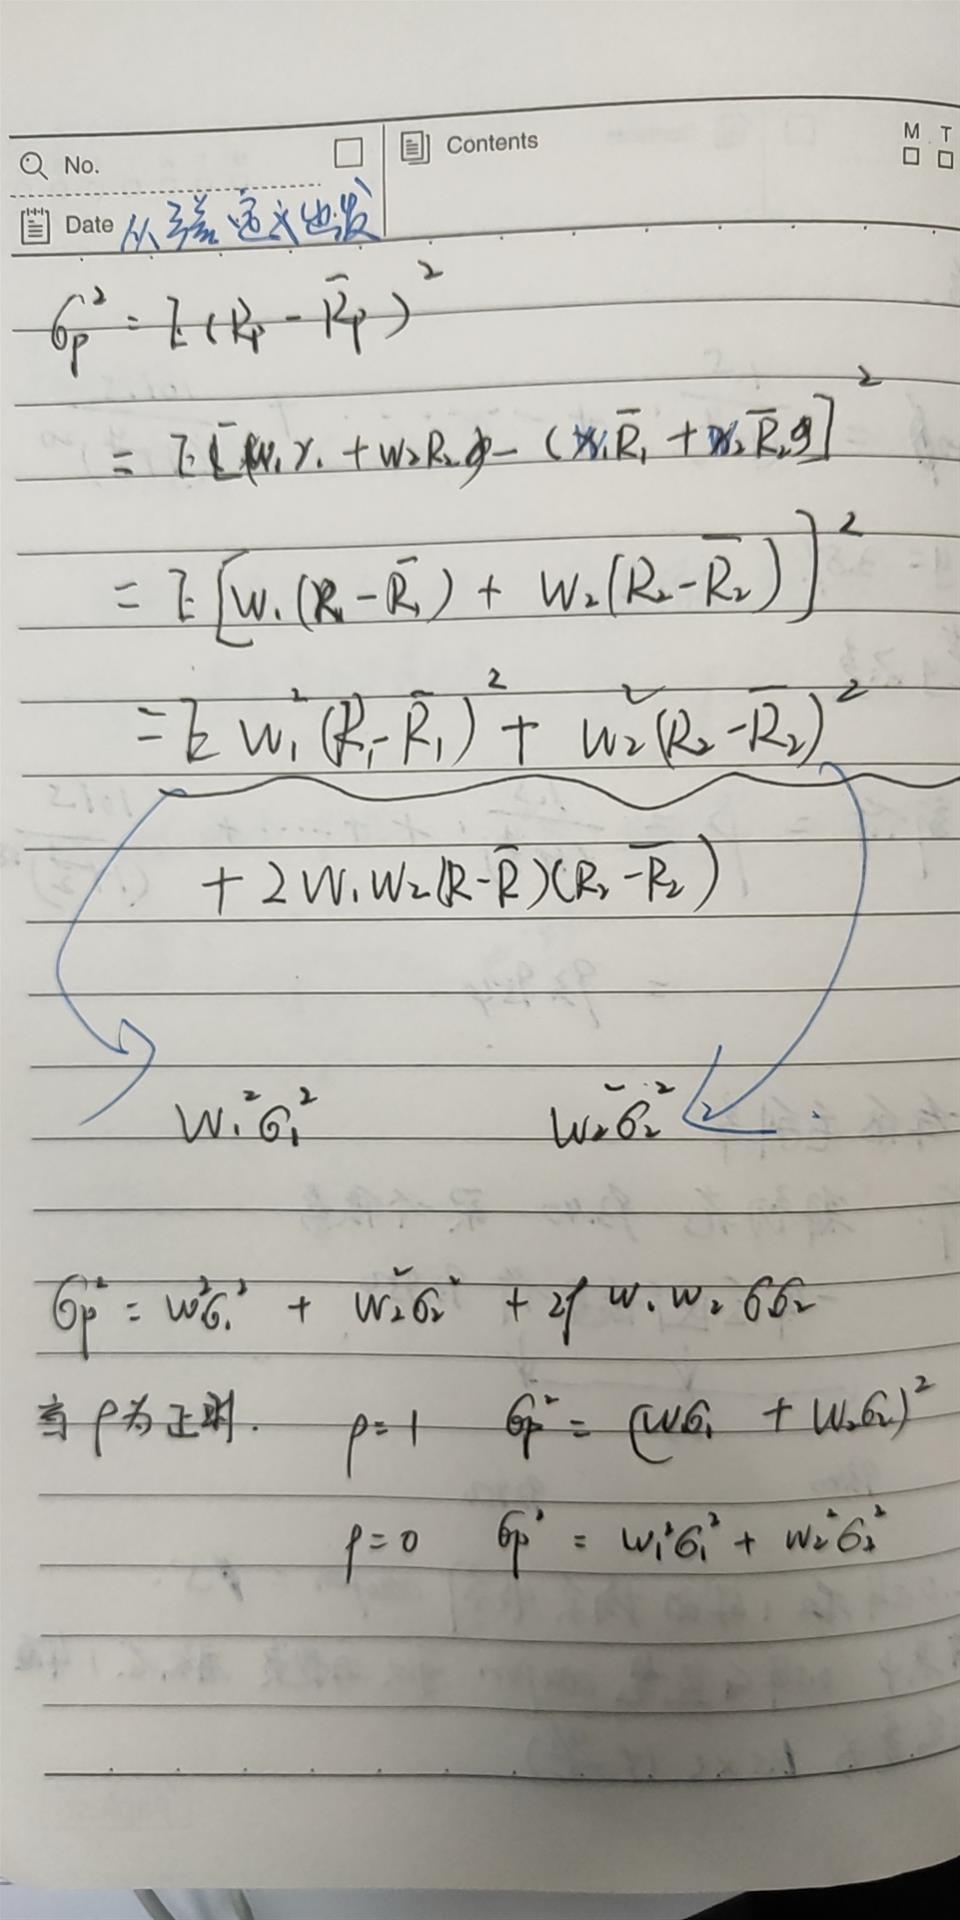 No.
Contents
M T
Date 从方差定义出发
σp² = E(Rp - R̄p)²
= E[(w₁r₁ + w₂R₂) - (w₁R̄₁ + w₂R̄₂)]²
= E[w₁(R₁ - R̄₁) + w₂(R₂ - R̄₂)]²
= E w₁²(R₁ - R̄₁)² + w₂²(R₂ - R̄₂)²
+ 2w₁w₂(R - R̄)(R₂ - R̄₂)
w₁²σ₁² w₂²σ₂²
σp² = w²σ₁² + w₂²σ₂² + 2ρ w₁w₂σσ₂
当ρ为正时. ρ=1 σp² = (wσ₁ + w₂σ₂)²
ρ=0 σp² = w₁²σ₁² + w₂²σ₂²